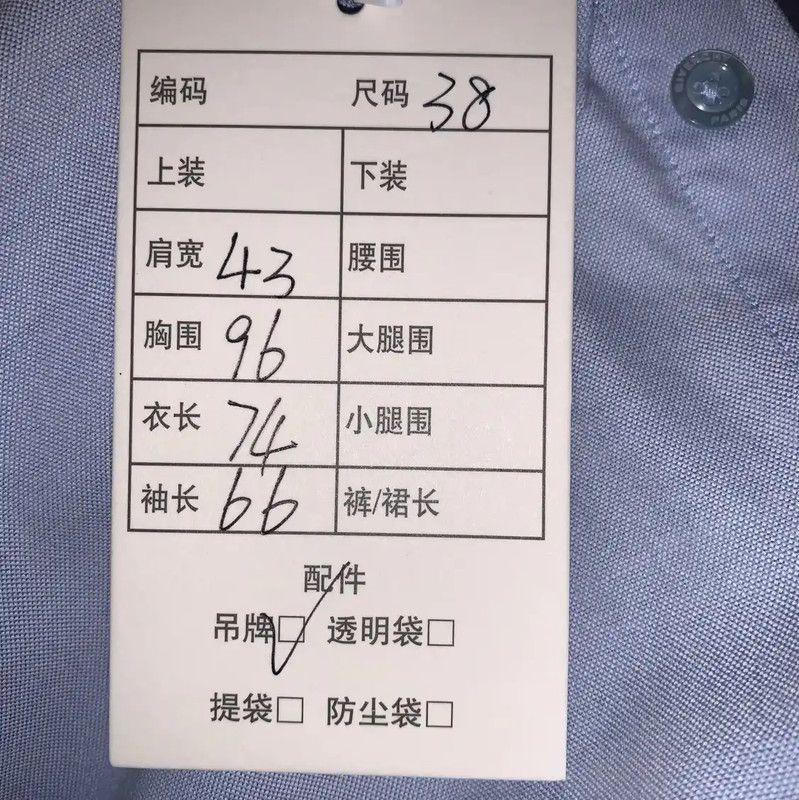 编码 尺码 38
上装 下装
肩宽 43 腰围
胸围 96 大腿围
衣长 74 小腿围
袖长 66 裤/裙长
配件
吊牌 透明袋
提袋 防尘袋
PARIS